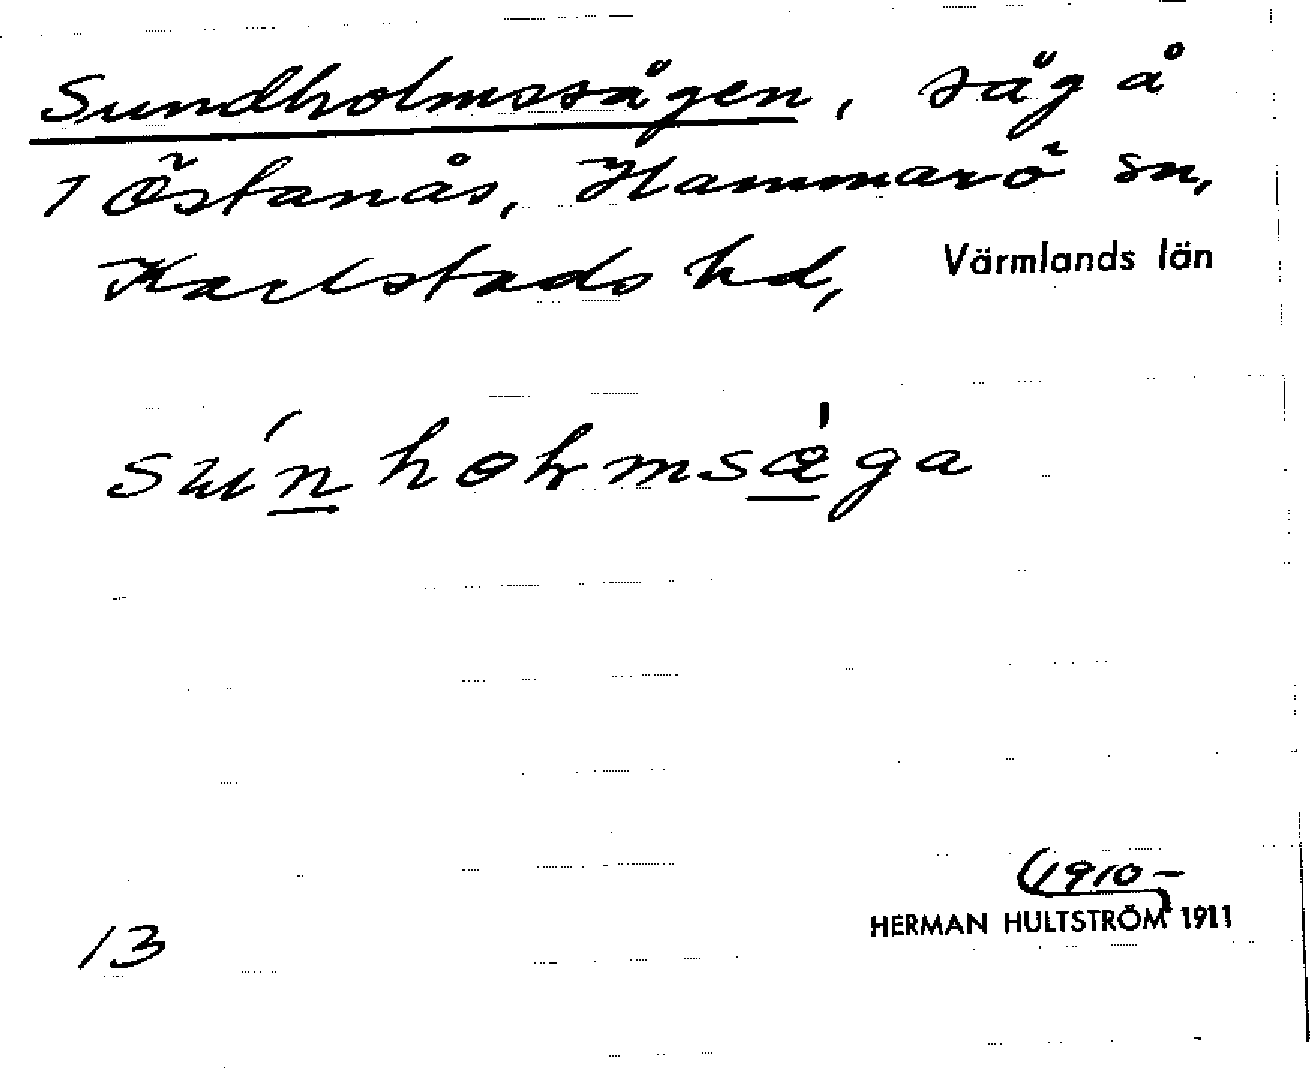 Sundholmssågen, såg å
1 Östanås, Hammarö sn,
Karlstads hd, Värmlands län
suńholmsǽga
(1910-
13
HERMAN HULTSTRÖM 1911